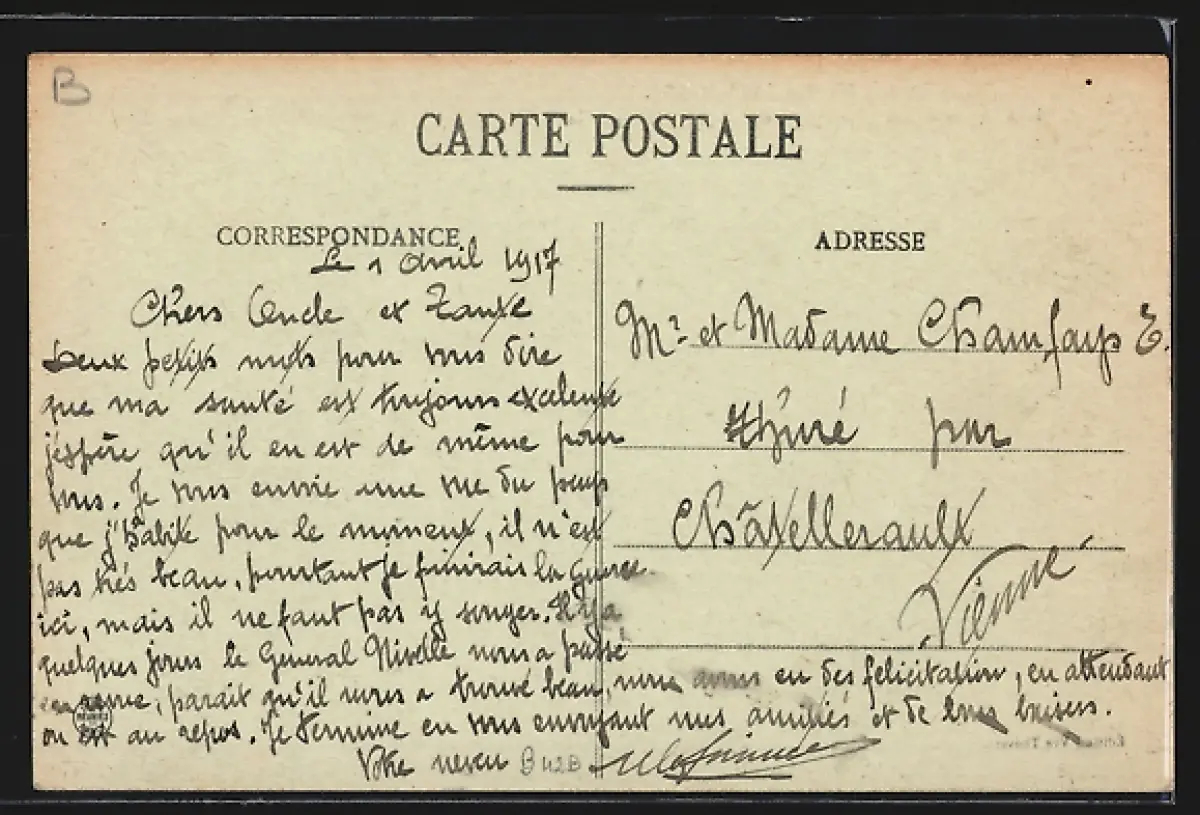 B
CARTE POSTALE
CORRESPONDANCE
Le 1 avril 1917
Chers Oncle et Tante
Deux petits mots pour vous dire
que ma santé est toujours excelente
j'espère qu'il en est de même pour
vous. Je vous envoie une vue du pays
que j'habite pour le moment, il n'est
pas très beau, pourtant je finirais la guerre
ici, mais il ne faut pas y songer. Il y a
quelques jours le General Nivelle nous a passé
en revue, parait qu'il nous a trouvé beau, nous avons eu des félicitation, en attendant
on est au repos. Je termine en vous envoyant mes amitiés et de bons baisers.
Votre neveu
B42B
ADRESSE
Mr et Madame Chamfays E.
Thuré par
Châtellerault
Vienne